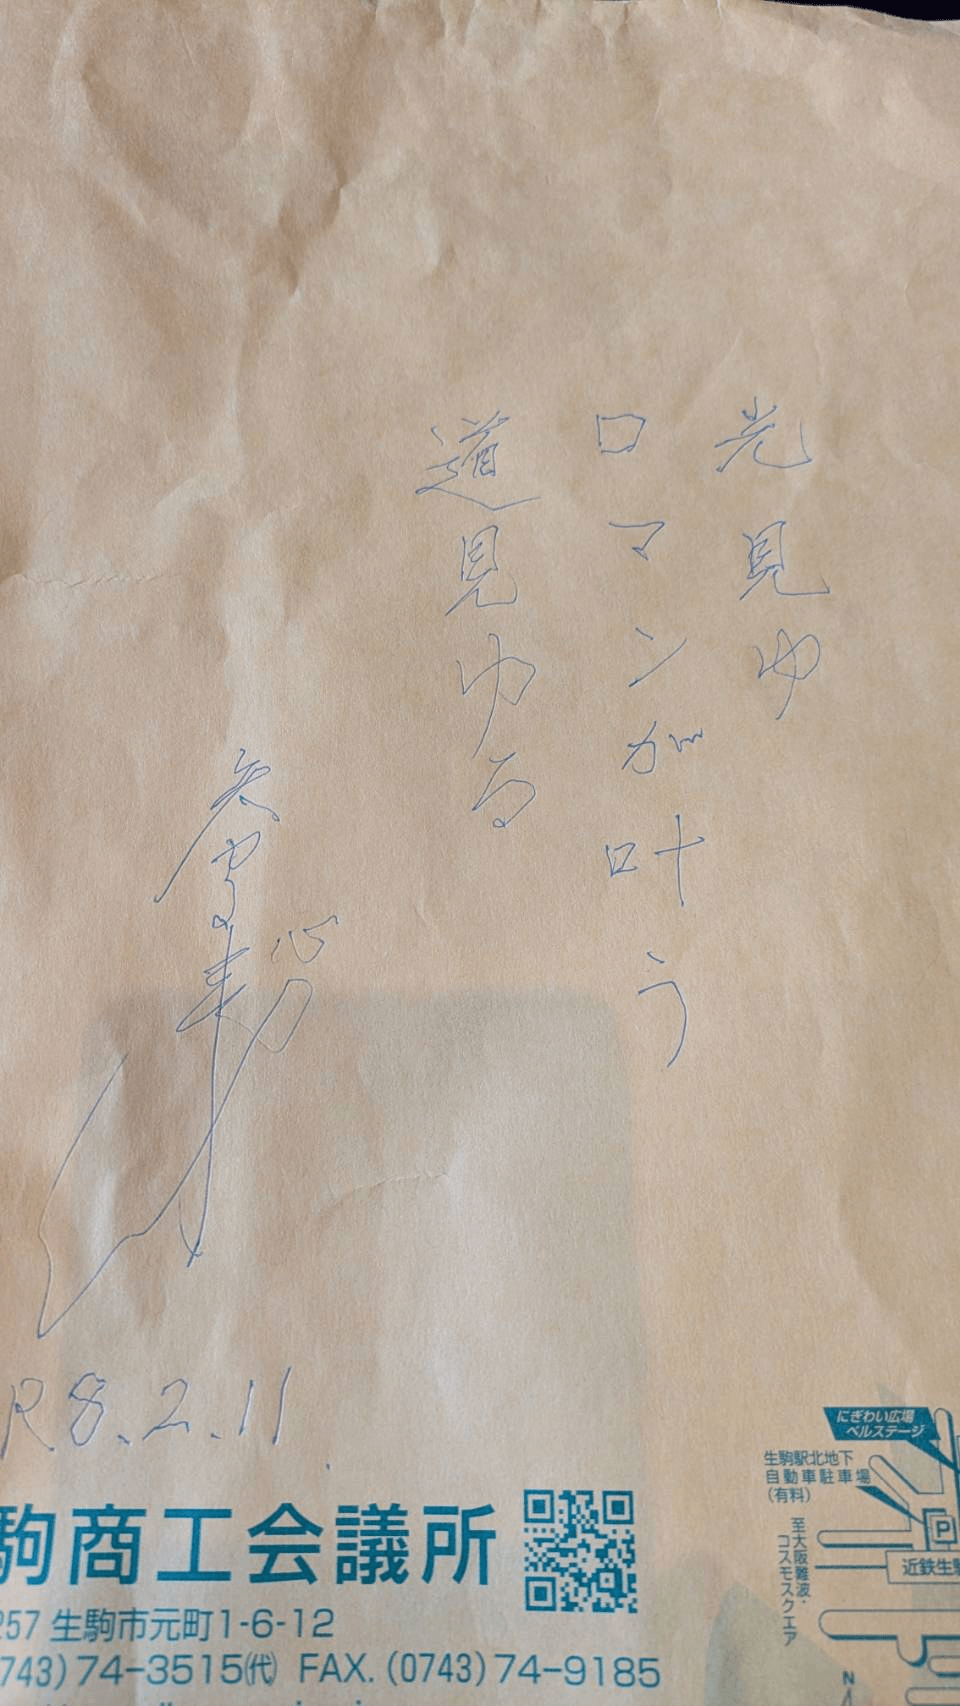 光見ゆ
ロマンが叶う
道見ゆる
R8.2.11
駒商工会議所
257 生駒市元町1-6-12
0743)74-3515(代) FAX.(0743)74-9185
にぎわい広場
ベルステージ
生駒駅北地下
自動車駐車場
(有料)
P
至大阪難波・
コスモスクエア
近鉄生駒
N